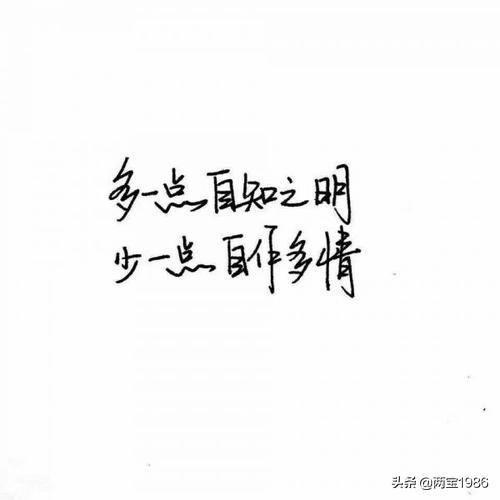 多一点自知之明
少一点自作多情
头条 @两宝1986